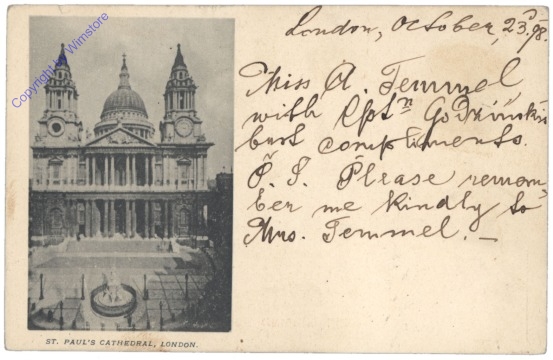 London, October, 23.d 98.
Miss A. Temmel,
with Cpt.n Godziński's
best compliments.
P. S. Please remem-
ber me kindly to
Mrs. Temmel. —
Copyright by Wimstore
ST. PAUL'S CATHEDRAL, LONDON.